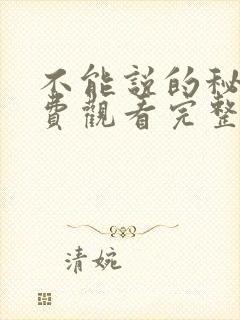 不能説的秘
費觀看完整
清婉